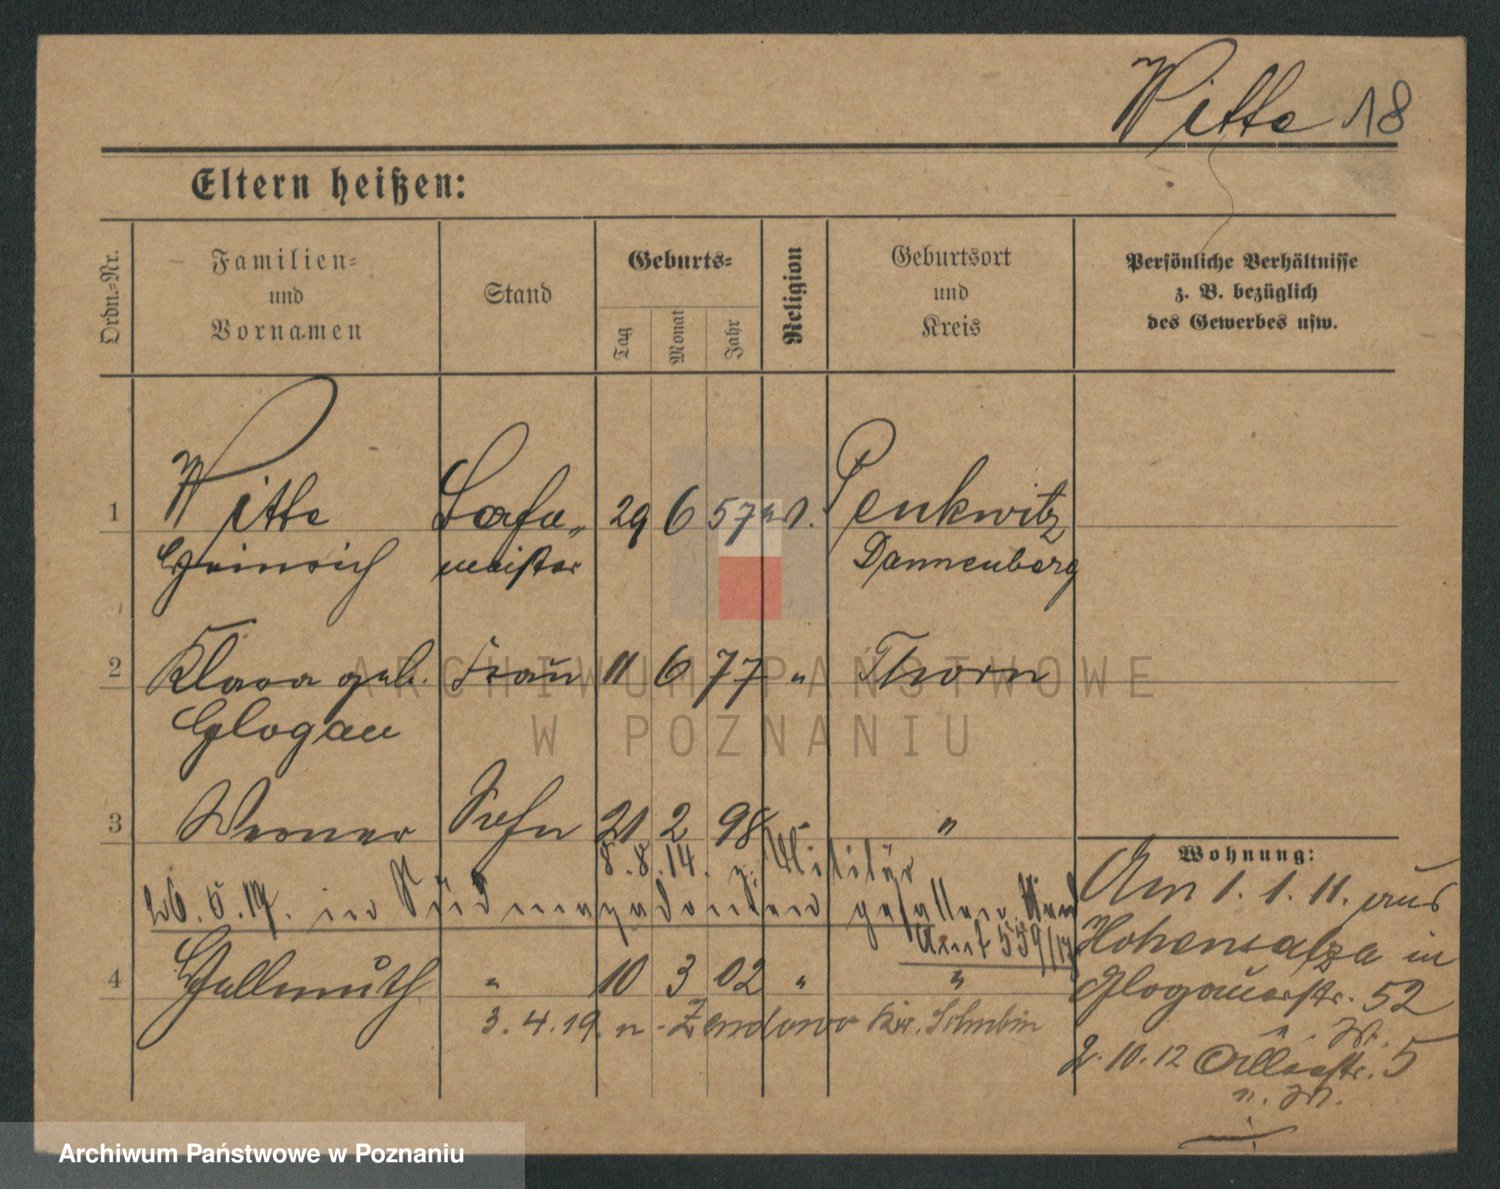 Witte 18
Eltern heißen:
Ordn.-Nr.
Familien-
und
Vornamen
Stand
Geburts-
Tag
Monat
Jahr
Religion
Geburtsort
und
Kreis
Persönliche Verhältnisse
z. B. bezüglich
des Gewerbes usw.
1 Witte 29 6 57 ev. Penkwitz
Heinrich meister Dannenberg
2 Klara geb. Frau 11 6 77 " Thorn
Glogau
3 Werner Sohn 21 2 98 " "
8.8.14. z. Militär
26.5.17. in Südmazedonien gefallen.
Amt 559/17
4 Hellmuth " 10 3 02 " "
3.4.19. n. Kr. Schubin
Wohnung:
Am 1.1.11. aus
Hohensalza in
Glogauerstr. 52
2.10.12 5
ARCHIWUM PAŃSTWOWE
W POZNANIU
Archiwum Państwowe w Poznaniu